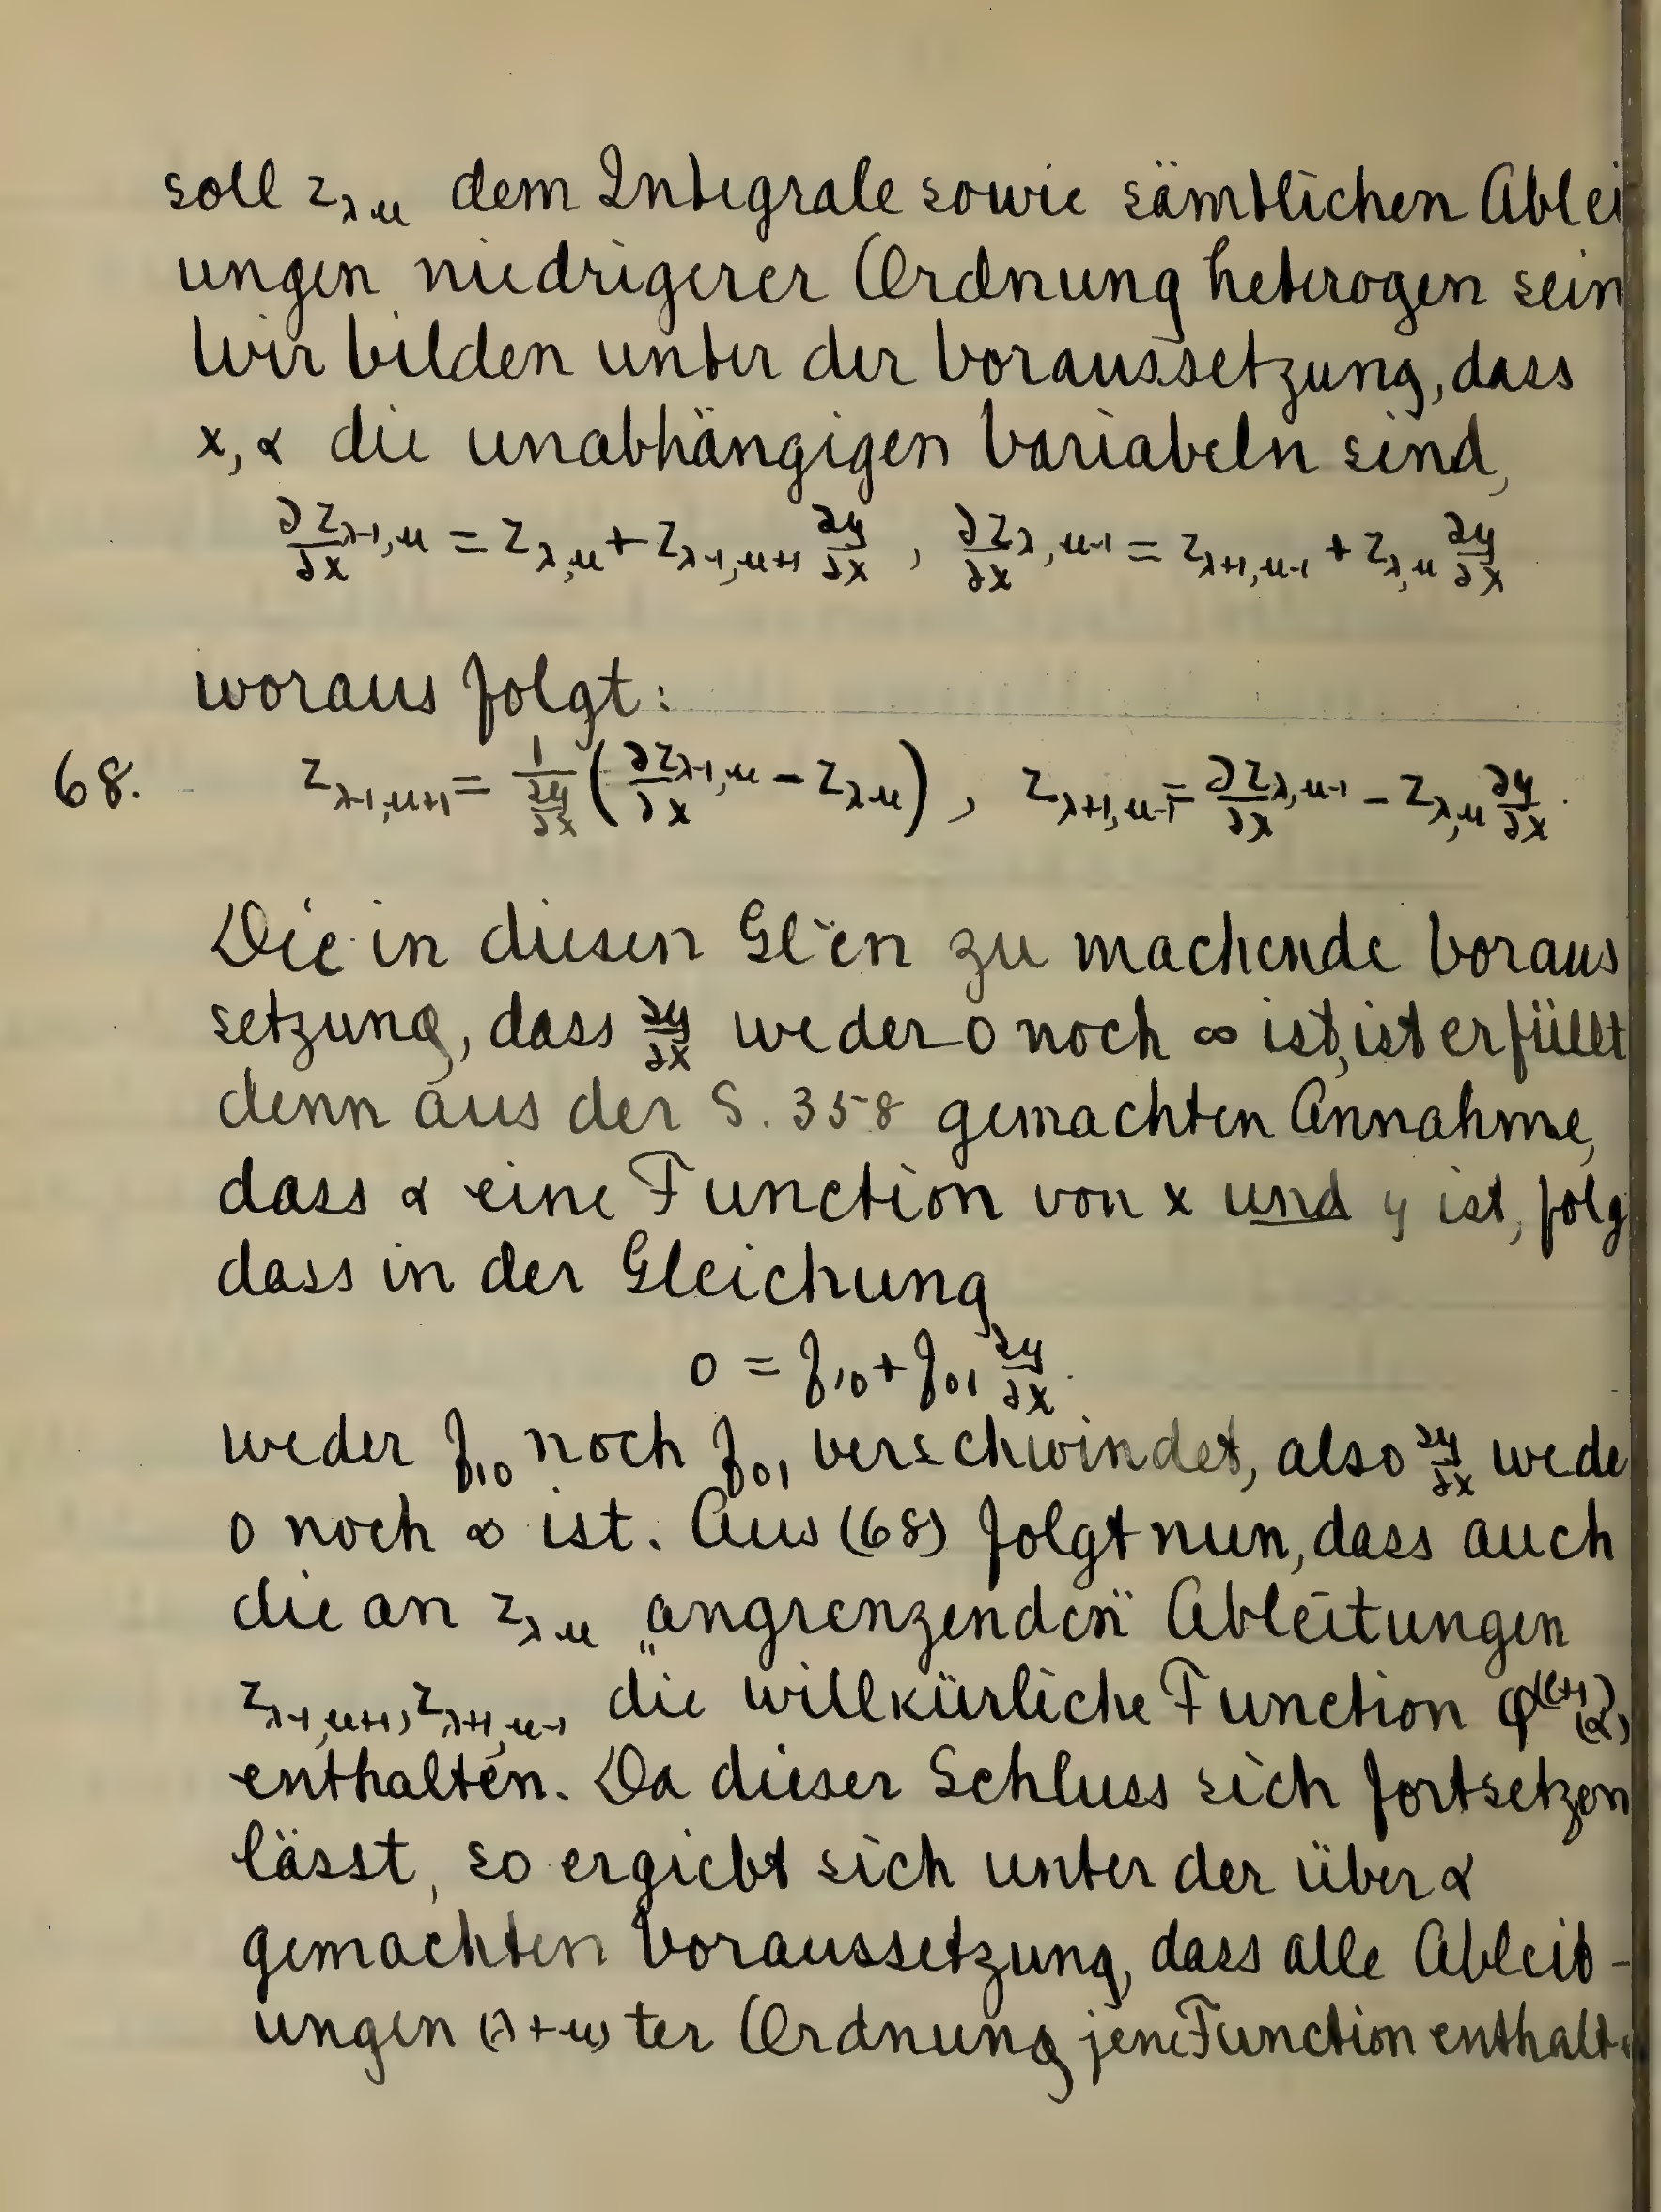 soll z_{λμ} dem Integrale sowie sämtlichen Ablei
ungen niedrigerer Ordnung heterogen sein
Wir bilden unter der Voraussetzung, dass
x, α die unabhängigen Variabeln sind,
∂z_{λ-1,μ}/∂x = z_{λ,μ} + z_{λ-1,μ+1} ∂y/∂x , ∂z_{λ,μ-1}/∂x = z_{λ+1,μ-1} + z_{λ,μ} ∂y/∂x
woraus folgt:
68. z_{λ-1,μ+1} = 1/(∂y/∂x) (∂z_{λ-1,μ}/∂x - z_{λμ}) , z_{λ+1,μ-1} = ∂z_{λ,μ-1}/∂x - z_{λ,μ} ∂y/∂x .
Die in diesen Gl̃en zu machende Voraus
setzung, dass ∂y/∂x weder 0 noch ∞ ist, ist erfüllt
denn aus der S. 358 gemachten Annahme,
dass α eine Function von x und y ist, folg
dass in der Gleichung
0 = f_{10} + f_{01} ∂y/∂x.
weder f_{10} noch f_{01} verschwindet, also ∂y/∂x wede
0 noch ∞ ist. Aus (68) folgt nun, dass auch
die an z_{λμ} „angrenzenden" Ableitungen
z_{λ-1,μ+1}, z_{λ+1,μ-1} die willkürliche Function φ^{(l+1)}(α),
enthalten. Da dieser Schluss sich fortsetzen
lässt, so ergiebt sich unter der über α
gemachten Voraussetzung, dass alle Ableit-
ungen (λ+μ) ter Ordnung jene Function enthalt